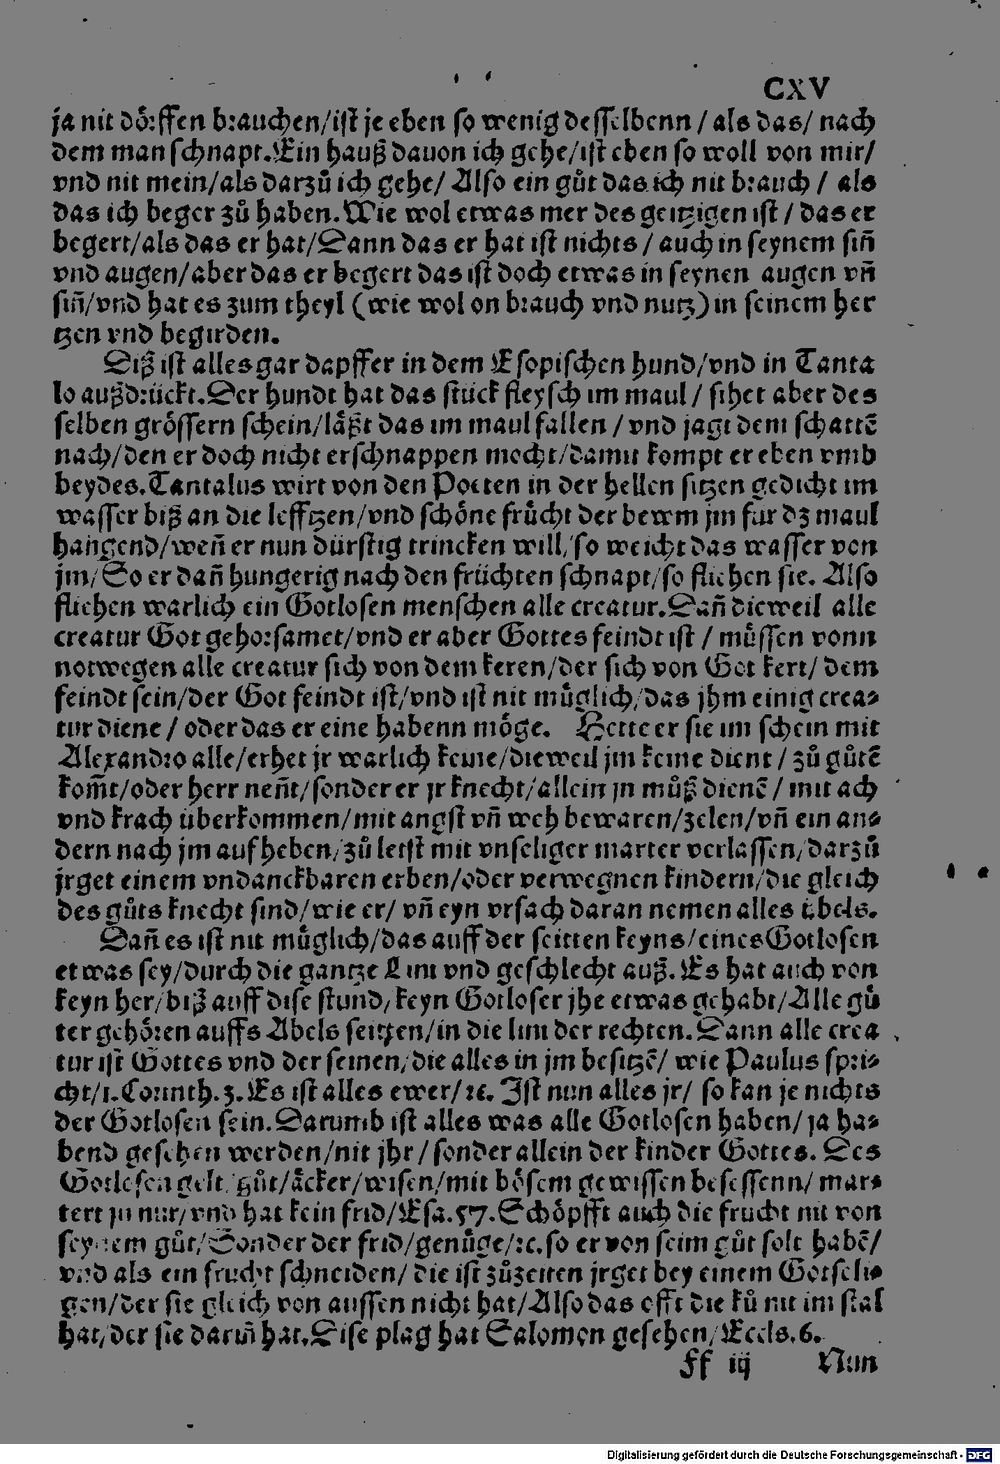 CXV
ja nit dörffen brauchen/ist je eben so wenig desselbenn / als das/ nach
dem man schnapt. Ein hauß dauon ich gehe/ist eben so woll von mir/
vnd nit mein/als darzů ich gehe/ Also ein gůt das ich nit brauch / als
das ich beger zů haben. Wie wol etwas mer des geitzigen ist / das er
begert/als das er hat/Dann das er hat ist nichts / auch in seynem siñ
vnd augen/aber das er begert das ist doch etwas in seynen augen vñ
siñ/vnd hat es zum theyl (wie wol on brauch vnd nutz) in seinem her
tzen vnd begirden.
Diß ist alles gar dapffer in dem Esopischen hund/vnd in Tanta
lo außdrückt. Der hundt hat das stuck fleysch im maul / sihet aber des
selben grössern schein/läßt das im maul fallen / vnd jagt dem schattē
nach/den er doch nicht erschnappen mocht/damit kompt er eben vmb
beydes. Tantalus wirt von den Poeten in der hellen sitzen gedicht im
wasser biß an die leffтzen/vnd schöne frücht der bewm jm für dz maul
hangend/weñ er nun dürstig trincken will/so weicht das wasser von
jm/ So er dañ hungerig nach den früchten schnapt/so fliehen sie. Also
fliehen warlich ein Gotlosen menschen alle creatur. Dañ dieweil alle
creatur Got gehorsamet/vnd er aber Gottes feindt ist / müssen vonn
notwegen alle creatur sich von dem keren/der sich von Got kert/ dem
feindt sein/der Got feindt ist/vnd ist nit müglich/das jhm einig crea-
tur diene / oder das er eine habenn möge. Hette er sie im schein mit
Alexandro alle/er het jr warlich keine/dieweil jm keine dient / zů gůtē
kom̃t/oder herr neñt/sonder er jr knecht/allein jn můß dienē / mit ach
vnd krach überkommen/mit angst vñ weh bewaren/zelen/vñ ein an-
dern nach jm auffheben/zů letst mit vnseliger marter verlassen/darzů
jrget einem vndanckbaren erben/oder verwegnen kindern/die gleich
des gůts knecht sind/wie er/ vñ eyn vrsach daran nemen alles übels.
Dañ es ist nit müglich/das auff der seitten keyns/eines Gotlosen
etwas sey/durch die gantze Lini vnd geschlecht auß. Es hat auch von
keyn her/biß auff dise stund/keyn Gotloser jhe etwas gehabt/Alle gů
ter gehören auffs Abels seitten/in die lini der rechten. Dann alle crea
tur ist Gottes vnd der seinen/die alles in jm besitzē/ wie Paulus spri-
cht/1. Corinth. 3. Es ist alles ewer/ꝛc. Ist nun alles jr/ so kan je nichts
der Gotlosen sein. Darumb ist alles was alle Gotlosen haben/ ja ha-
bend gesehen werden/nit jhr / sonder allein der kinder Gottes. Des
Gotlosen gelt/gůt/äcker/wisen/mit bösem gewissen besessenn/ mar-
tert jn nur/vnd hat kein frid/Esa. 57. Schöpfft auch die frucht nit von
seynem gůt/Sonder der frid/genůge/ꝛc. so er von seim gůt solt habē/
vnd als ein frucht schneiden/ die ist zůzeiten jrget bey einem Gotseli-
gen/der sie gleich von aussen nicht hat/Also das offt die ků nit im stal
hat/der sie dariñ hat. Dise plag hat Salomon gesehen/Eccls. 6.
Ff iij Nun
Digitalisierung gefördert durch die Deutsche Forschungsgemeinschaft - DFG